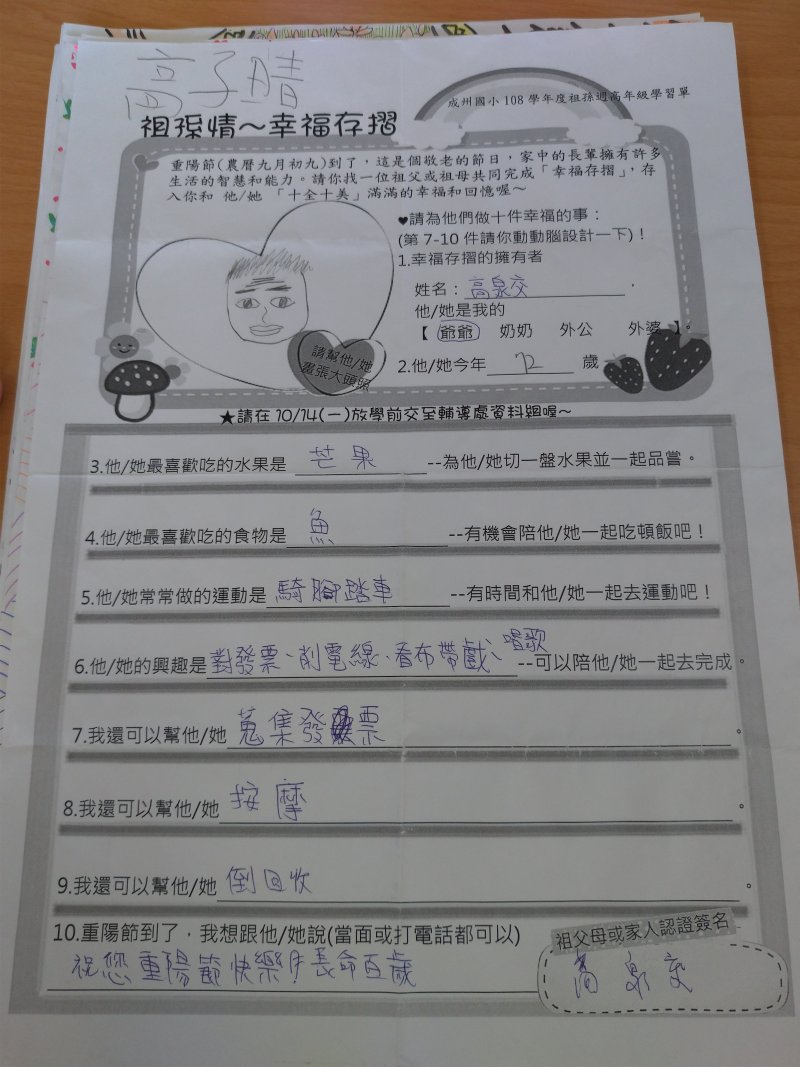 高子晴
成州國小108學年度祖孫週高年級學習單
祖孫情～幸福存摺
重陽節(農曆九月初九)到了，這是個敬老的節日，家中的長輩擁有許多
生活的智慧和能力。請你找一位祖父或祖母共同完成「幸福存摺」，存
入你和 他/她 「十全十美」滿滿的幸福和回憶喔～
♥請為他們做十件幸福的事：
(第 7-10 件請你動動腦設計一下)！
1.幸福存摺的擁有者
姓名：高泉交，
他/她是我的
【 爺爺 奶奶 外公 外婆 】。
請幫他/她
畫張大頭照
2.他/她今年 72 歲
★請在10/14(一)放學前交至輔導處資料組喔～
3.他/她最喜歡吃的水果是 芒果 --為他/她切一盤水果並一起品嘗。
4.他/她最喜歡吃的食物是 魚 --有機會陪他/她一起吃頓飯吧！
5.他/她常常做的運動是 騎腳踏車 --有時間和他/她一起去運動吧！
6.他/她的興趣是 對發票、削電線、看布帶戲、唱歌 --可以陪他/她一起去完成。
7.我還可以幫他/她 蒐集發票。
8.我還可以幫他/她 按摩。
9.我還可以幫他/她 倒回收。
10.重陽節到了，我想跟他/她說(當面或打電話都可以)
祝您重陽節快樂！長命百歲
祖父母或家人認證簽名
高泉交